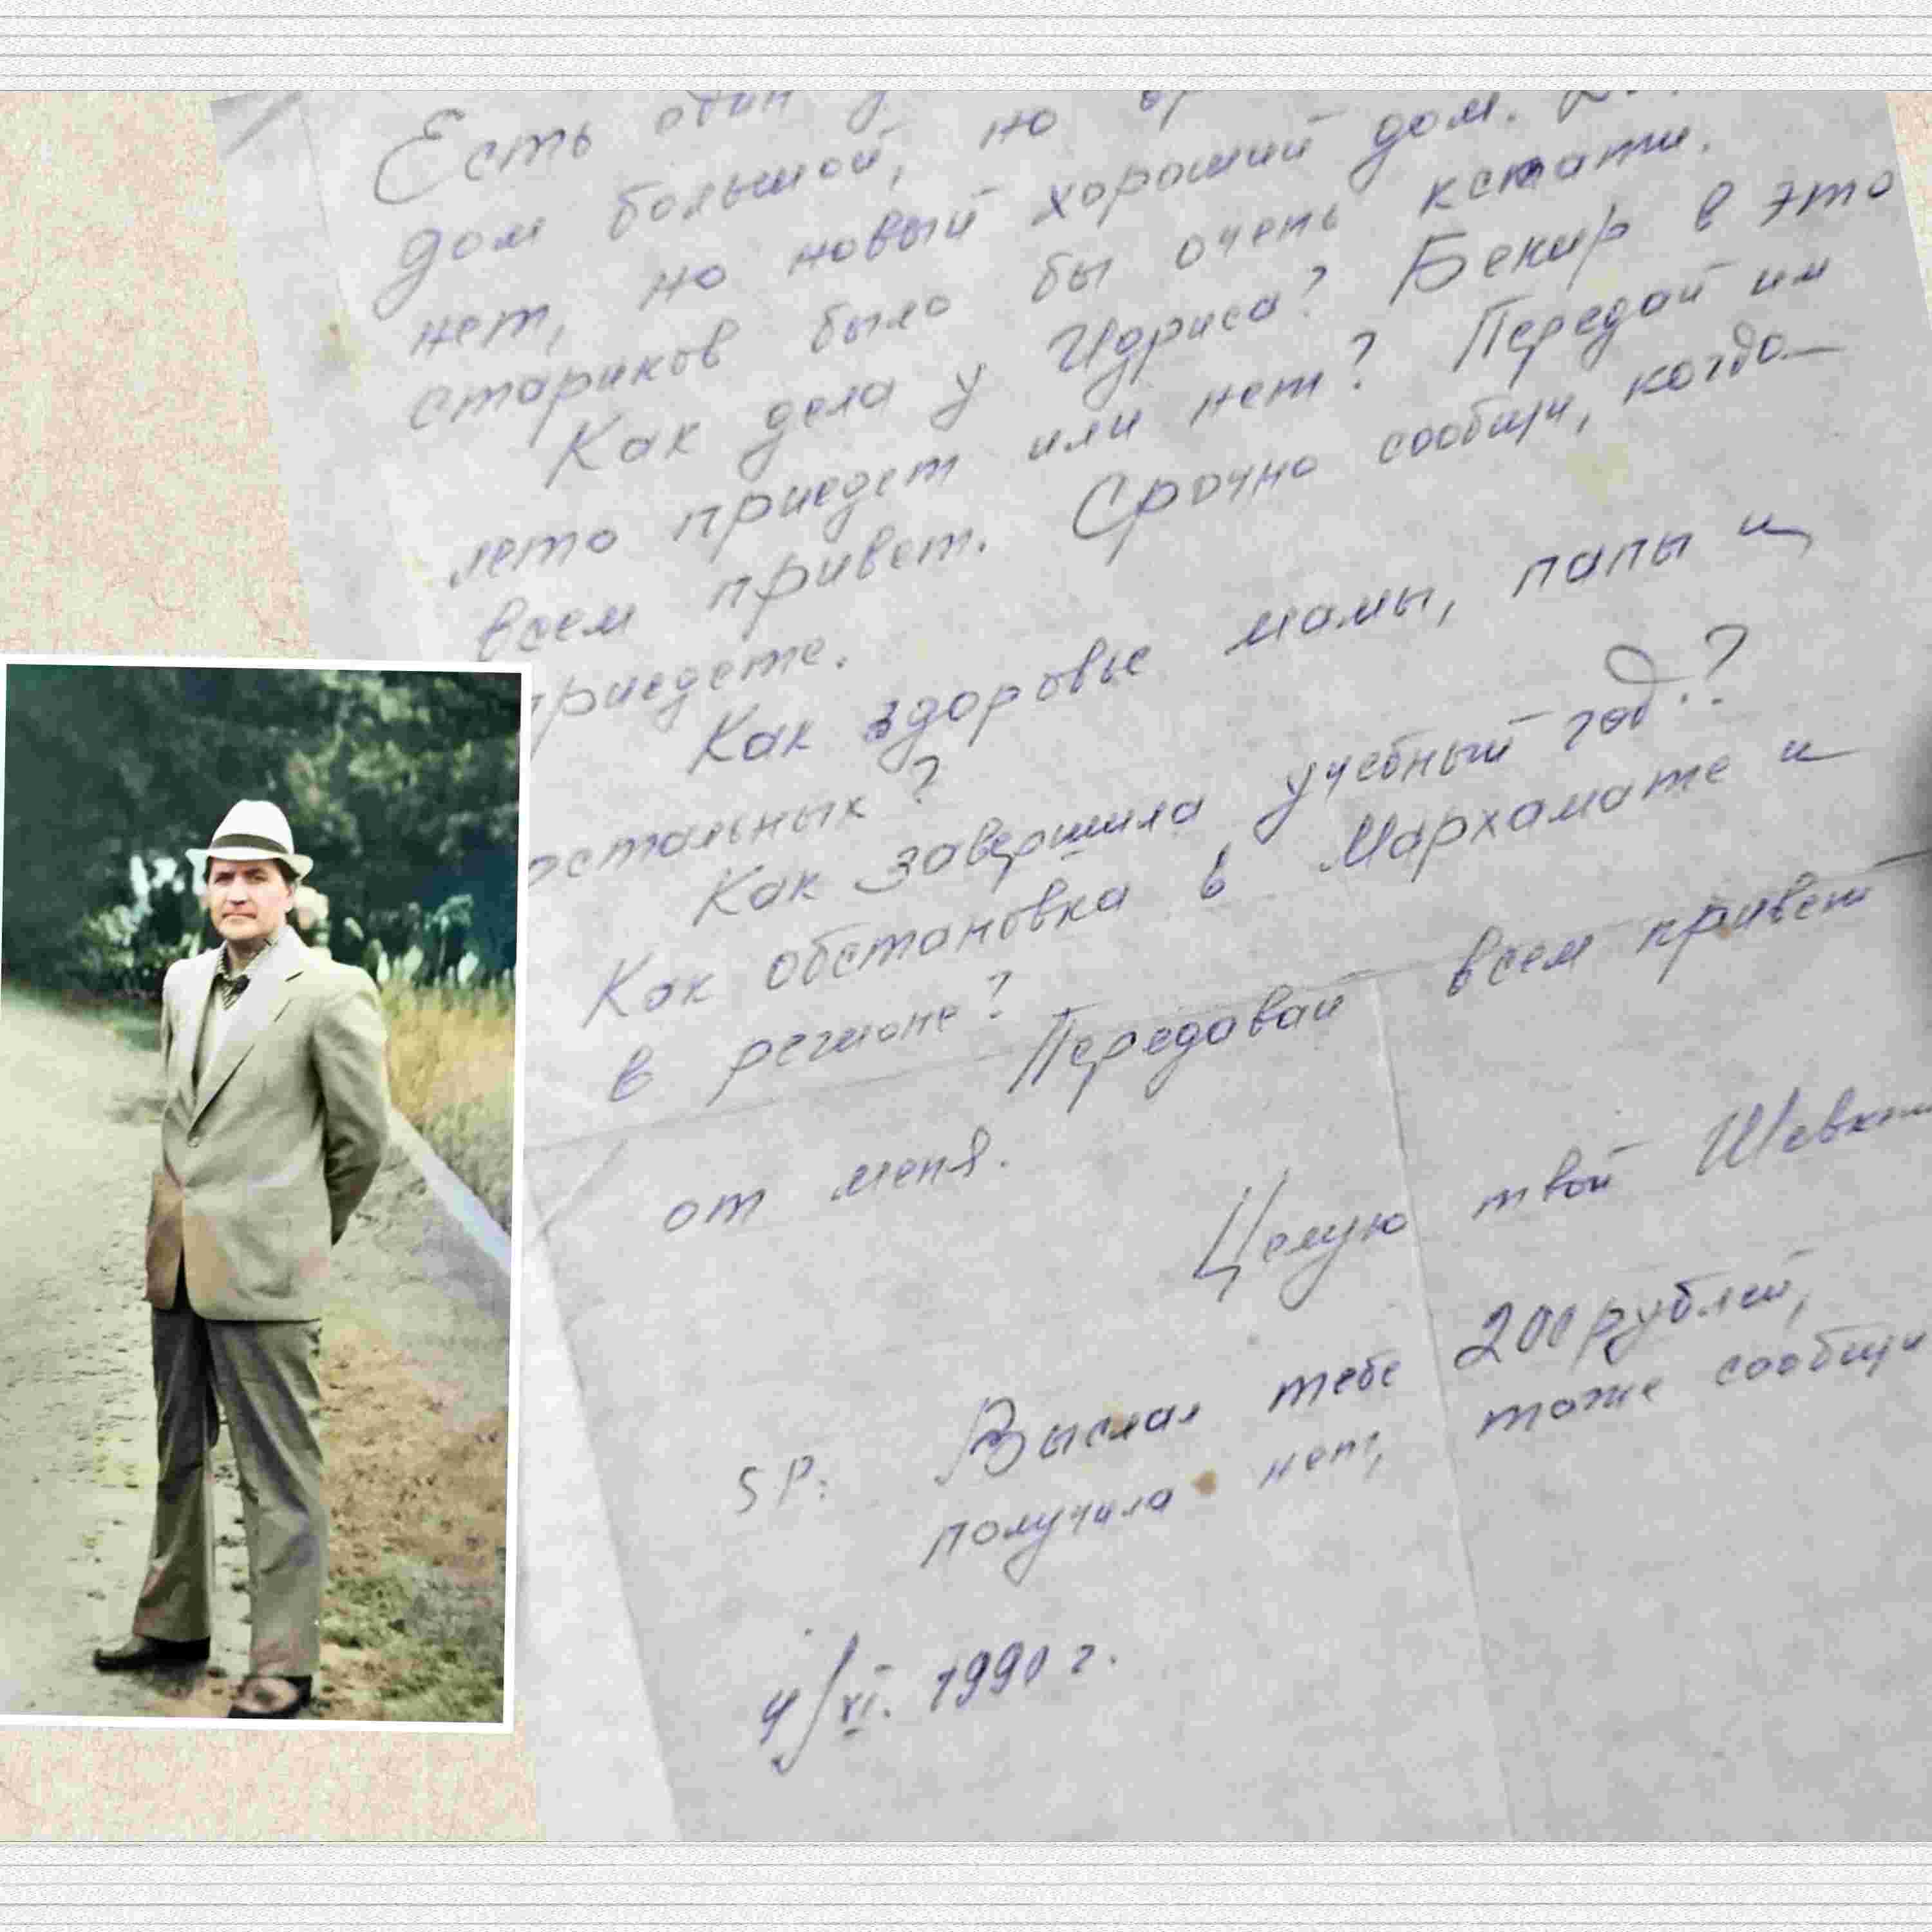 Есть один
дом большой, но
нет, но новый хороший дом.
стариков было бы очень кстати.
Как дела у Идриса? Бекир в это
лето приедет или нет? Передай им
всем привет. Срочно сообщи, когда
приедете.
Как здоровье мамы, папы и
остальных?
Как завершила учебный год.?
Как обстановка в Мархамате и
в регионе? Передавай всем привет
от меня.
Целую твой Шевкет
SP: Выслал тебе 200 рублей,
получила нет, тоже сообщи
4/XI. 1990 г.